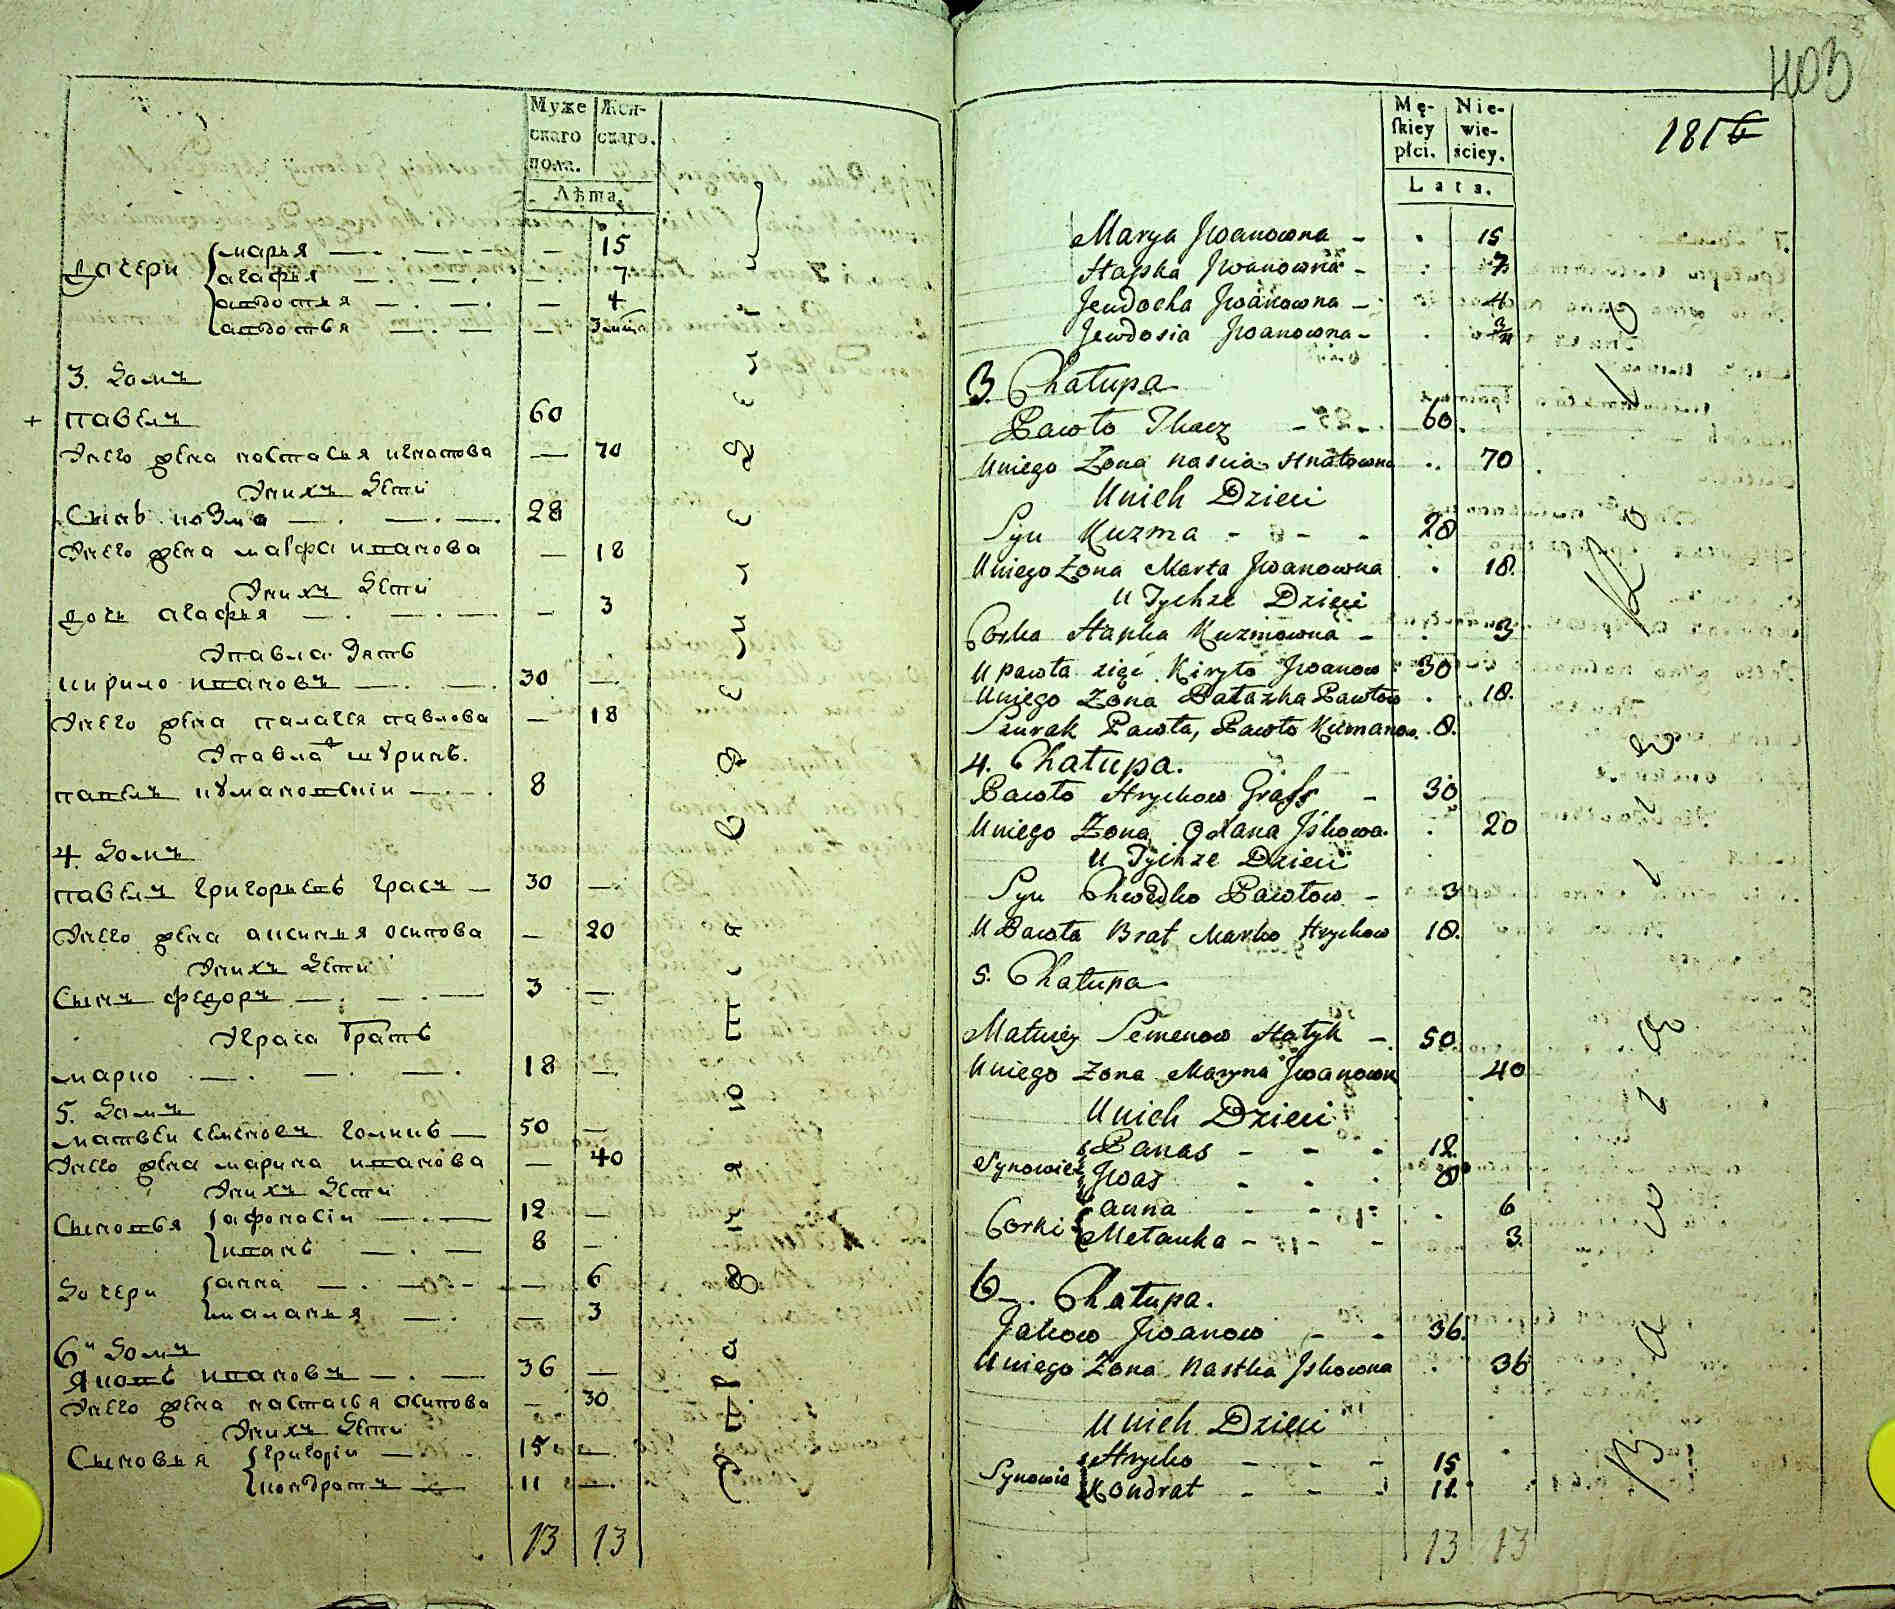 Муже Жен-
скаго скаго.
пола.
Лѣта,
дочери марья — 15
агафья — 7
авдотья — 4
авдотья — 3 мца
3. домъ
+ павелъ 60
Унего жена настасья игнатова — 70
Унихъ дети
Сынъ козма 28
Унего жена марфа иванова — 18
Унихъ дети
дочь агафья — 3
Упавла зять
кирило ивановъ 30 —
Унего жена палагея павлова — 18
Упавла шуринъ.
павелъ кумановскiи 8
4 домъ
павелъ григорьевъ грасъ 30 —
Унего жена аксинья осипова — 20
Унихъ дети
Сынъ федоръ 3 —
Уграса братъ
марко 18 —
5. домъ
матвеи семеновъ голикъ 50 —
Унего жена марина иванова — 40
Унихъ дети
Сыновья афонасiи 12 —
иванъ 8 —
дочери анна — 6
маланья — 3
6й домъ
Яковъ ивановъ 36 —
Унего жена настасья осипова — 30
Унихъ дети
Сыновья григорiи 15 —
кондратъ 11 —
13 13
403
1816
Mę- Nie-
skiey wie-
płci. ściey.
Lata.
Marya Jwanowna - . 15
Hapka Jwanowna - . 7
Jewdocha Jwanowna - . 4
Jewdosia Jwanowna - . 3/м
3. Chałupa
Pawło Tkacz - 60.
Uniego Żona Nascia Hnatowna .. 70
Unich Dzieci
Syn Kuzma - - - 28
Uniego Żona Marta Jwanowna . 18.
U Tychże Dzieci
Corka Hapka Kuzmowna - . 3
U Pawła zięć Kiryło Jwanow 30
Uniego Żona Pałażka Pawłow . 18.
Szurak Pawła, Pawło Kumanow. 8.
4. Chałupa.
Pawło Hrychow Grass - 30
Uniego Żona Oxana Jśkowa . 20
U Tychże Dzieci
Syn Chwedko Pawłow - 3
U Pawła Brat Marko Hrychow 18.
5. Chałupa
Matwiey Semenow Hałyk - 50
Uniego Żona Maryna Jwanown 40
Unich Dzieci
Synowie Panas - - - 12.
Jwas - - . 8
Corki anna - - - . 6
Mełanka - - - 3.
6. Chałupa.
Jakow Jwanow - - 36.
Uniego Żona Nastka Jśkowna . 36
Unich Dzieci
Synowie Hrycko - - - 15
Kondrat - - - 11.
13 13